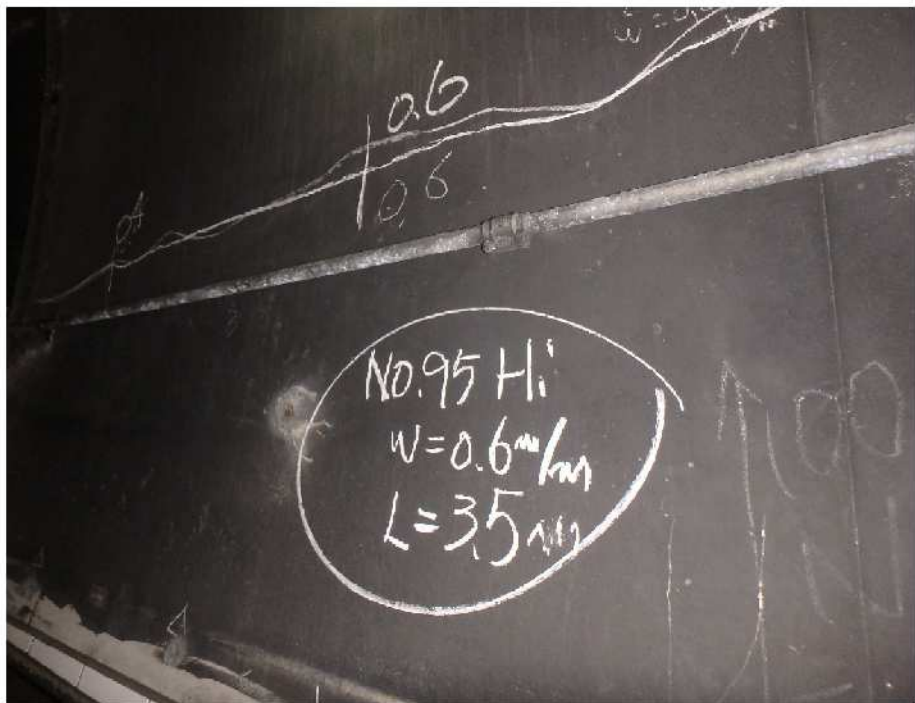 0.6
0.6
No.95 Hi
W=0.6m/m
L=3.5m